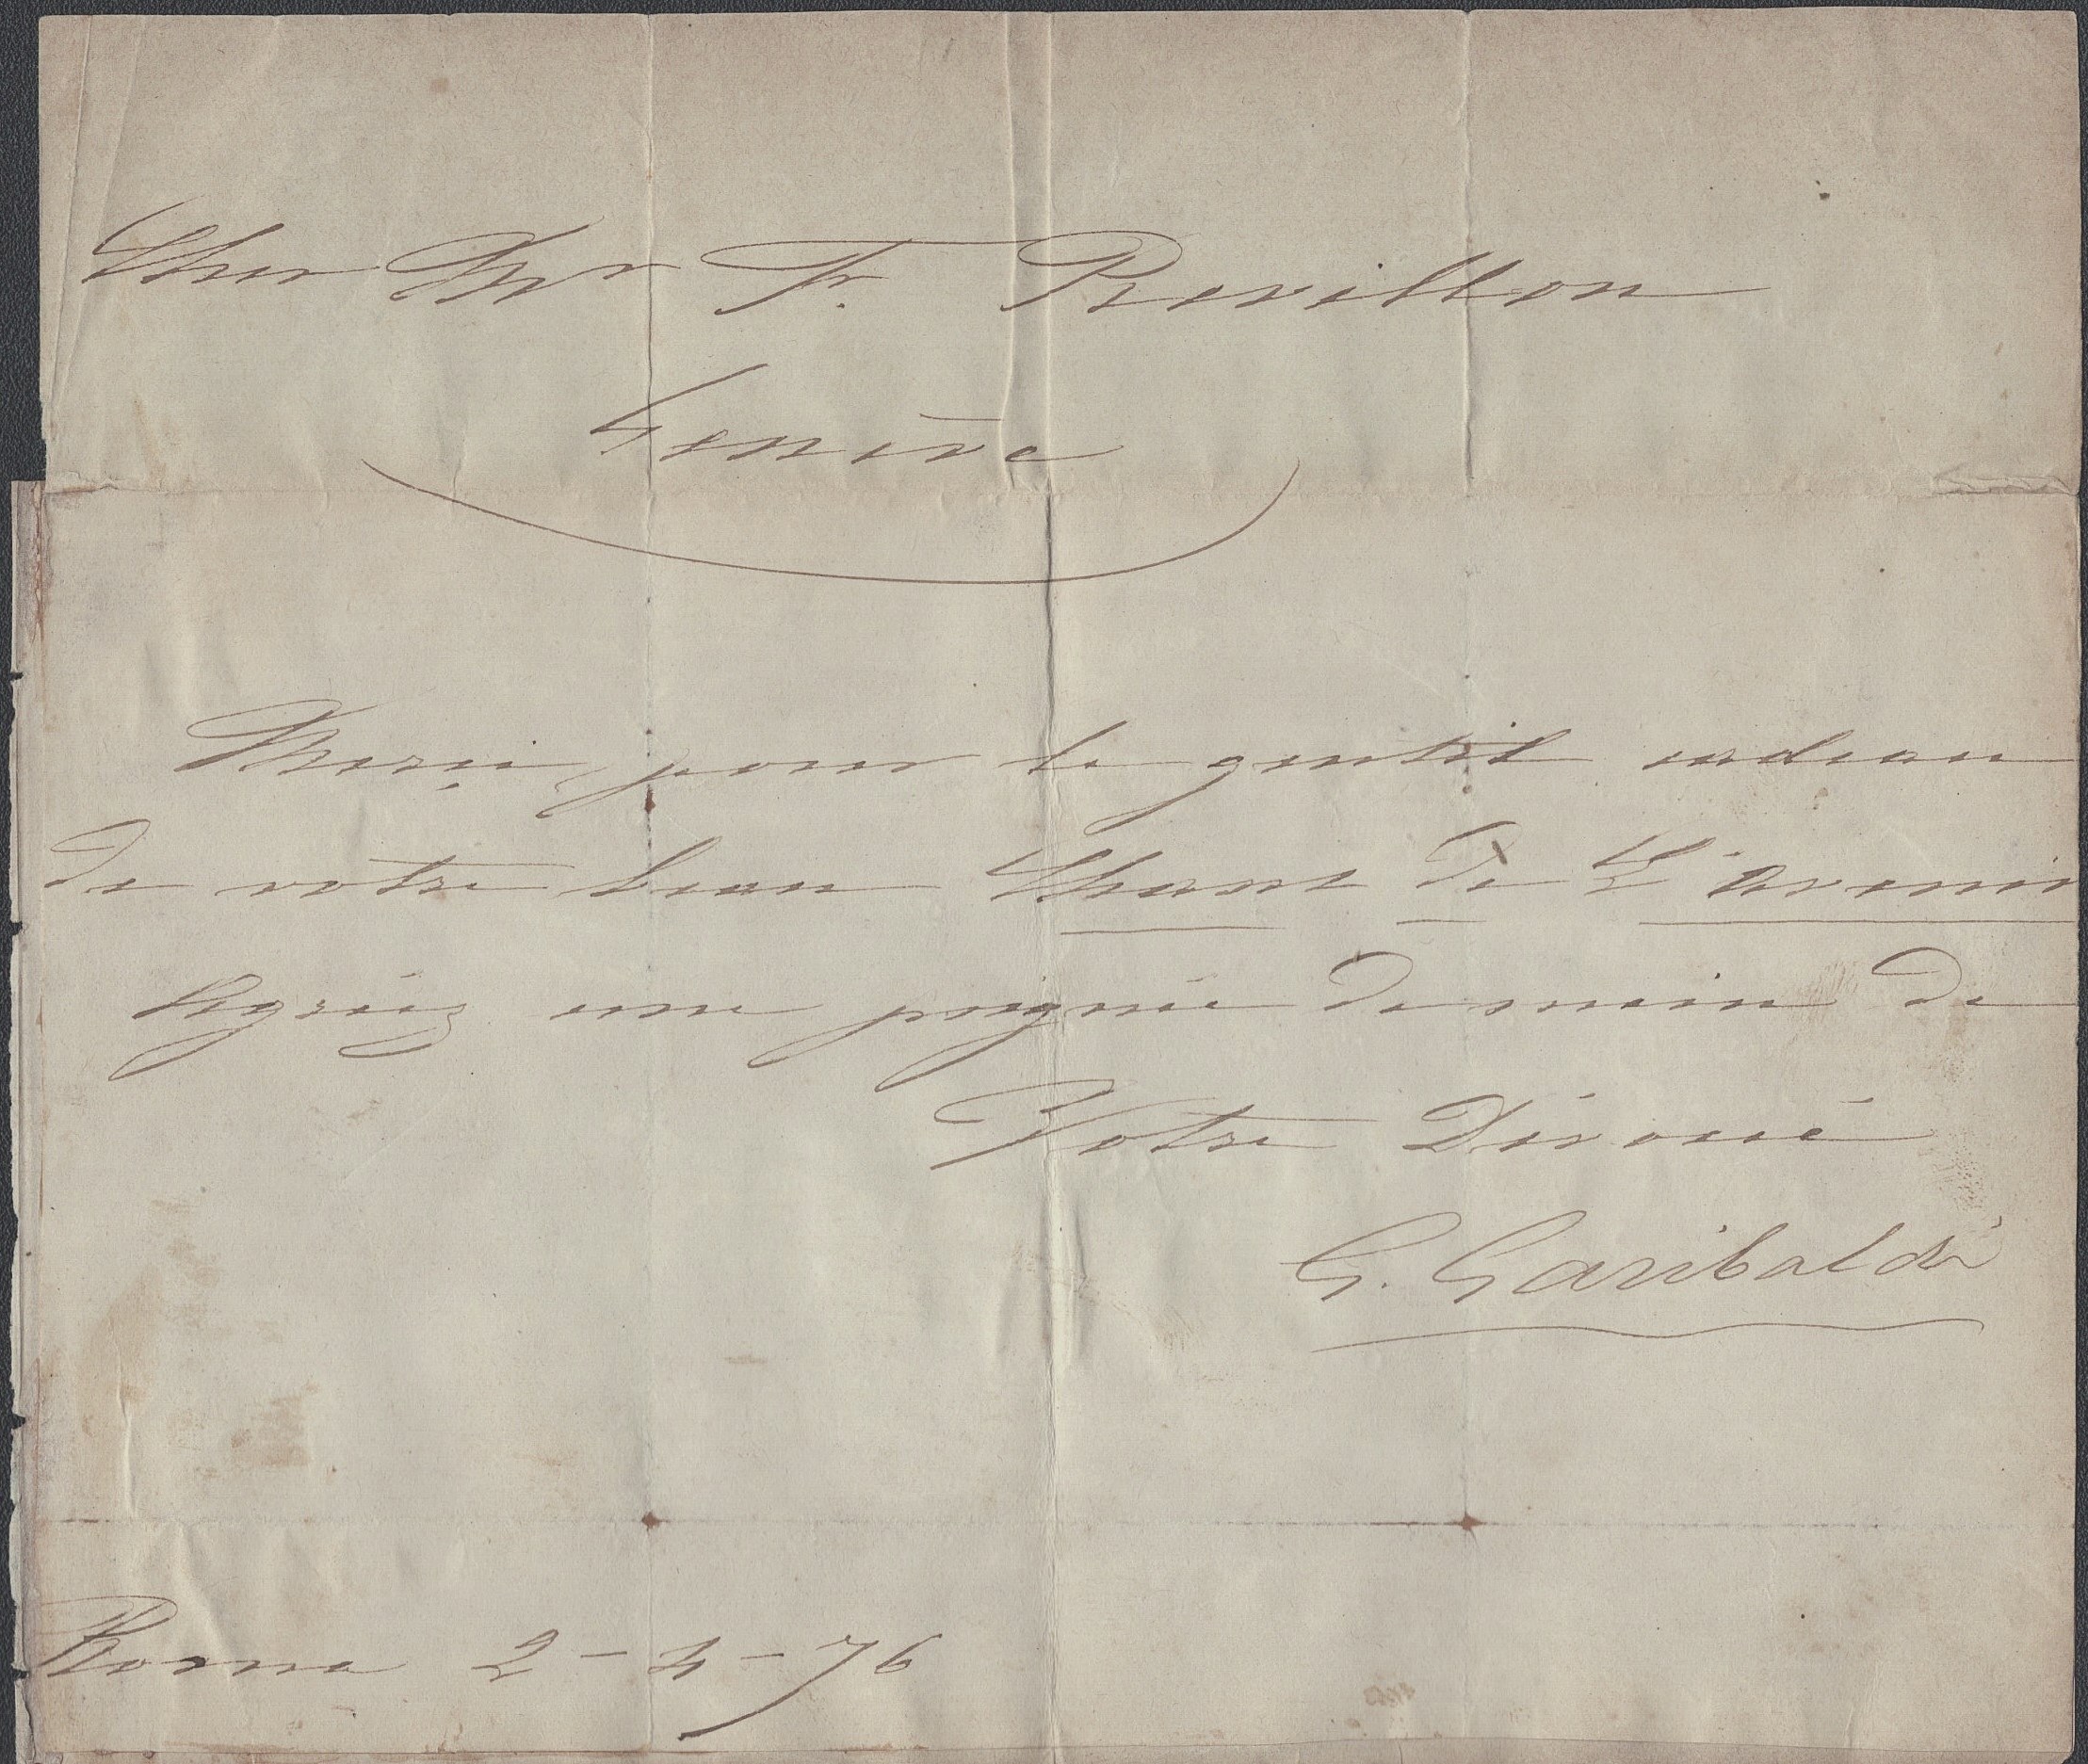 Cher Mr F. Revillon
Genève
Merci pour le gentil cadeau
de votre beau Chant de L'avenir
Agréez une poignée de main de
Votre Dévoué
G. Garibaldi
Rome 2-4-76